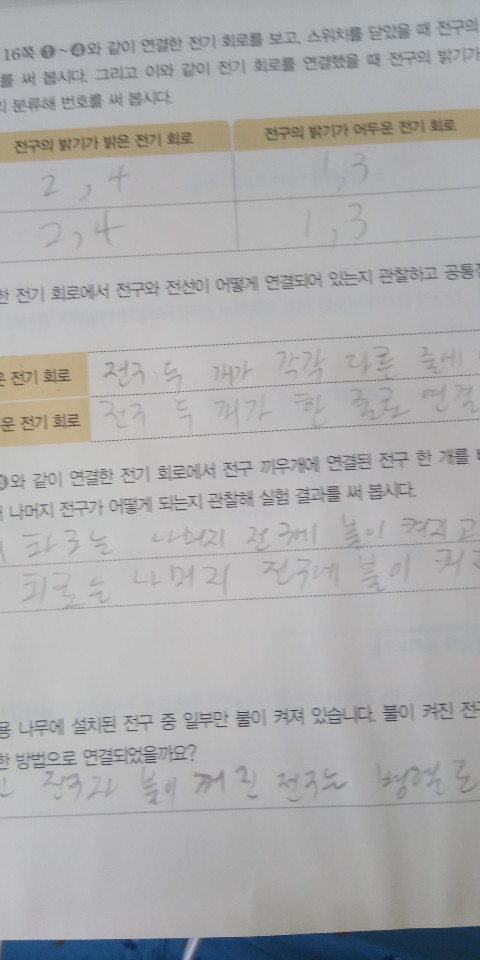 16쪽 ❶~❹와 같이 연결한 전기 회로를 보고, 스위치를 닫았을 때 전구의
를 써 봅시다. 그리고 이와 같이 전기 회로를 연결했을 때 전구의 밝기가
분류해 번호를 써 봅시다.
전구의 밝기가 밝은 전기 회로 전구의 밝기가 어두운 전기 회로
2, 4 1, 3
2, 4 1, 3
한 전기 회로에서 전구와 전선이 어떻게 연결되어 있는지 관찰하고 공통
은 전기 회로 전구 두 개가 각각 다른 줄에
운 전기 회로 전구 두 개가 한 줄로 연결
와 같이 연결한 전기 회로에서 전구 끼우개에 연결된 전구 한 개를
나머지 전구가 어떻게 되는지 관찰해 실험 결과를 써 봅시다.
나머지 전구에 불이 켜지고
회로는 나머지 전구에 불이
용 나무에 설치된 전구 중 일부만 불이 켜져 있습니다. 불이 켜진 전
한 방법으로 연결되었을까요?
전구와 불이 꺼진 전구는 병렬로